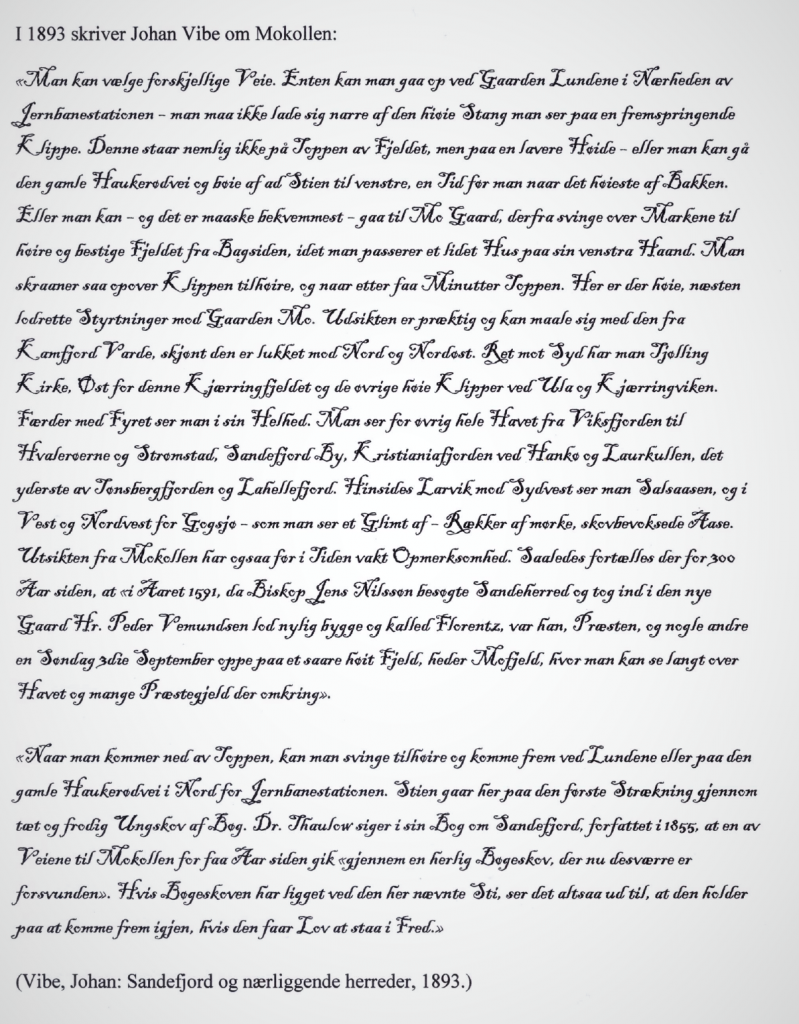 I 1893 skriver Johan Vibe om Mokollen:
«Man kan vælge forskjellige Veie. Enten kan man gaa op ved Gaarden Lundene i Nærheden av
Jernbanestationen – man maa ikke lade sig narre af den høie Stang man ser paa en fremspringende
Klippe. Denne staar nemlig ikke på Toppen av Fjeldet, men paa en lavere Høide – eller man kan gå
den gamle Haukerødvei og bøie af ad Stien til venstre, en Tid før man naar det høieste af Bakken.
Eller man kan – og det er maaske bekvemmest – gaa til Mo Gaard, derfra svinge over Markene til
høire og bestige Fjeldet fra Bagsiden, idet man passerer et lidet Hus paa sin venstra Haand. Man
skraaner saa opover Klippen tilhøire, og naar etter faa Minutter Toppen. Her er der høie, næsten
lodrette Styrtninger mod Gaarden Mo. Udsikten er præktig og kan maale sig med den fra
Kamfjord Varde, skjønt den er lukket mod Nord og Nordøst. Ret mot Syd har man Tjølling
Kirke, Øst for denne Kjærringfjeldet og de øvrige høie Klipper ved Ula og Kjærringviken.
Færder med Fyret ser man i sin Helhed. Man ser for øvrig hele Havet fra Viksfjorden til
Hvalerøerne og Strømstad, Sandefjord By, Kristianiafjorden ved Hankø og Laurkullen, det
yderste av Tønsbergfjorden og Lahellefjord. Hinsides Larvik mod Sydvest ser man Salsaasen, og i
Vest og Nordvest for Gogsjø – som man ser et Glimt af – Rækker af mørke, skovbevoksede Aase.
Utsikten fra Mokollen har ogsaa før i Tiden vakt Opmerksomhed. Saaledes fortælles der for 300
Aar siden, at «i Aaret 1591, da Biskop Jens Nilssøn besøgte Sandeherred og tog ind i den nye
Gaard Hr. Peder Vemundsen lod nylig bygge og kalled Florentz, var han, Præsten, og nogle andre
en Søndag 3die September oppe paa et saare høit Fjeld, heder Mofjeld, hvor man kan se langt over
Havet og mange Præstegjeld der omkring».
«Naar man kommer ned av Toppen, kan man svinge tilhøire og komme frem ved Lundene eller paa den
gamle Haukerødvei i Nord for Jernbanestationen. Stien gaar her paa den første Strækning gjennom
tæt og frodig Ungskov af Bøg. Dr. Thaulow siger i sin Bog om Sandefjord, forfattet i 1855, at en av
Veiene til Mokollen for faa Aar siden gik «gjennem en herlig Bøgeskov, der nu desværre er
forsvunden». Hvis Bøgeskoven har ligget ved den her nævnte Sti, ser det altsaa ud til, at den holder
paa at komme frem igjen, hvis den faar Lov at staa i Fred.»
(Vibe, Johan: Sandefjord og nærliggende herreder, 1893.)